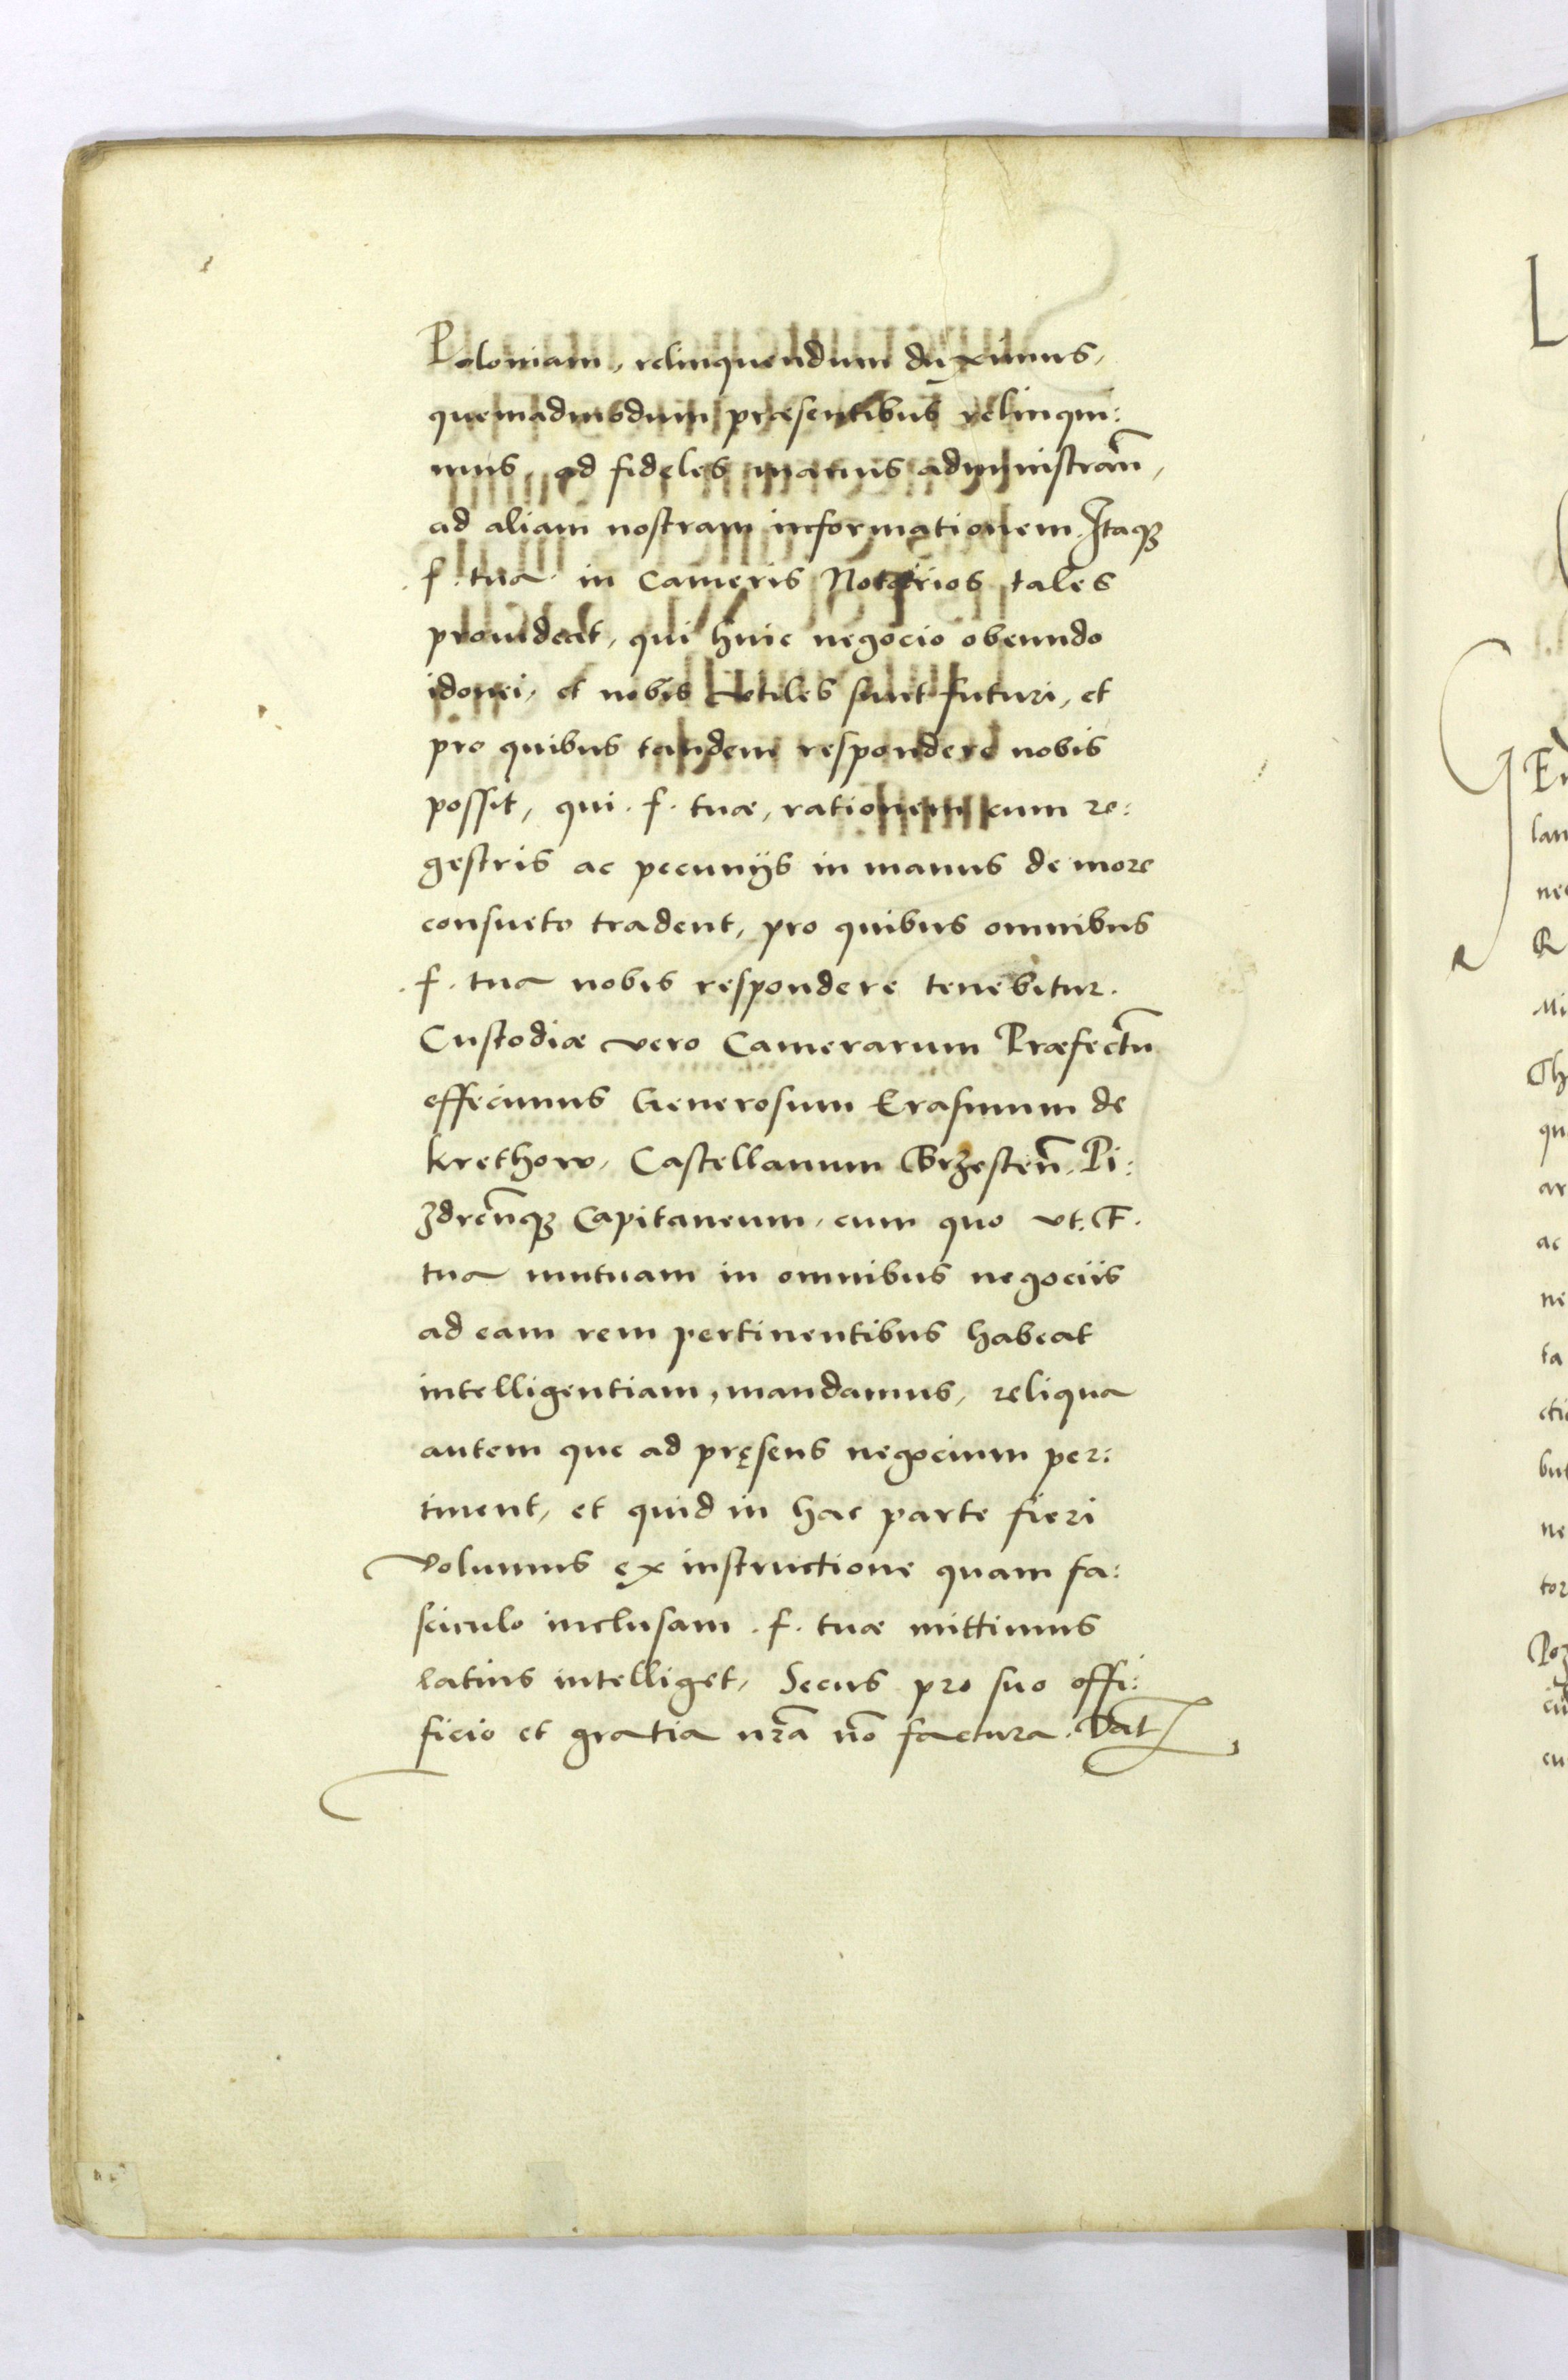 Poloniam, relinquendum duximus,
quemadmodum præsentibus relinqui:
mus, ad fideles manus administrañ,
ad aliam nostram informationem. Itaqꝫ
.f. tua in Cameris Notarios tales
prouideat, qui huic negocio obeundo
idonei, et nobis vtiles sint futuri, et
pro quibus tandem respondere nobis
possit, qui .f. tuæ, rationem cum re:
gestris ac pecunijs in manus de more
consueto tradent, pro quibus omnibus
.f. tua nobis respondere tenebitur.
Custodiæ vero Camerarum Præfectũ
effecimus Generosum Erasmum de
Krethow, Castellanum Brzesteñ. Pi:
zdreñqꝫ Capitaneum, cum quo vt. F.
tua mutuam in omnibus negociis
ad eam rem pertinentibus habeat
intelligentiam, mandamus, reliqua
autem que ad pręsens negocium per:
tinent, et quid in hac parte fieri
volumus ex instructione quam fa:
sciculo inclusam .f. tuæ mittimus
latius intelliget, Secus pro suo offi:
ficio et gratia nrã nõ factura. Dat